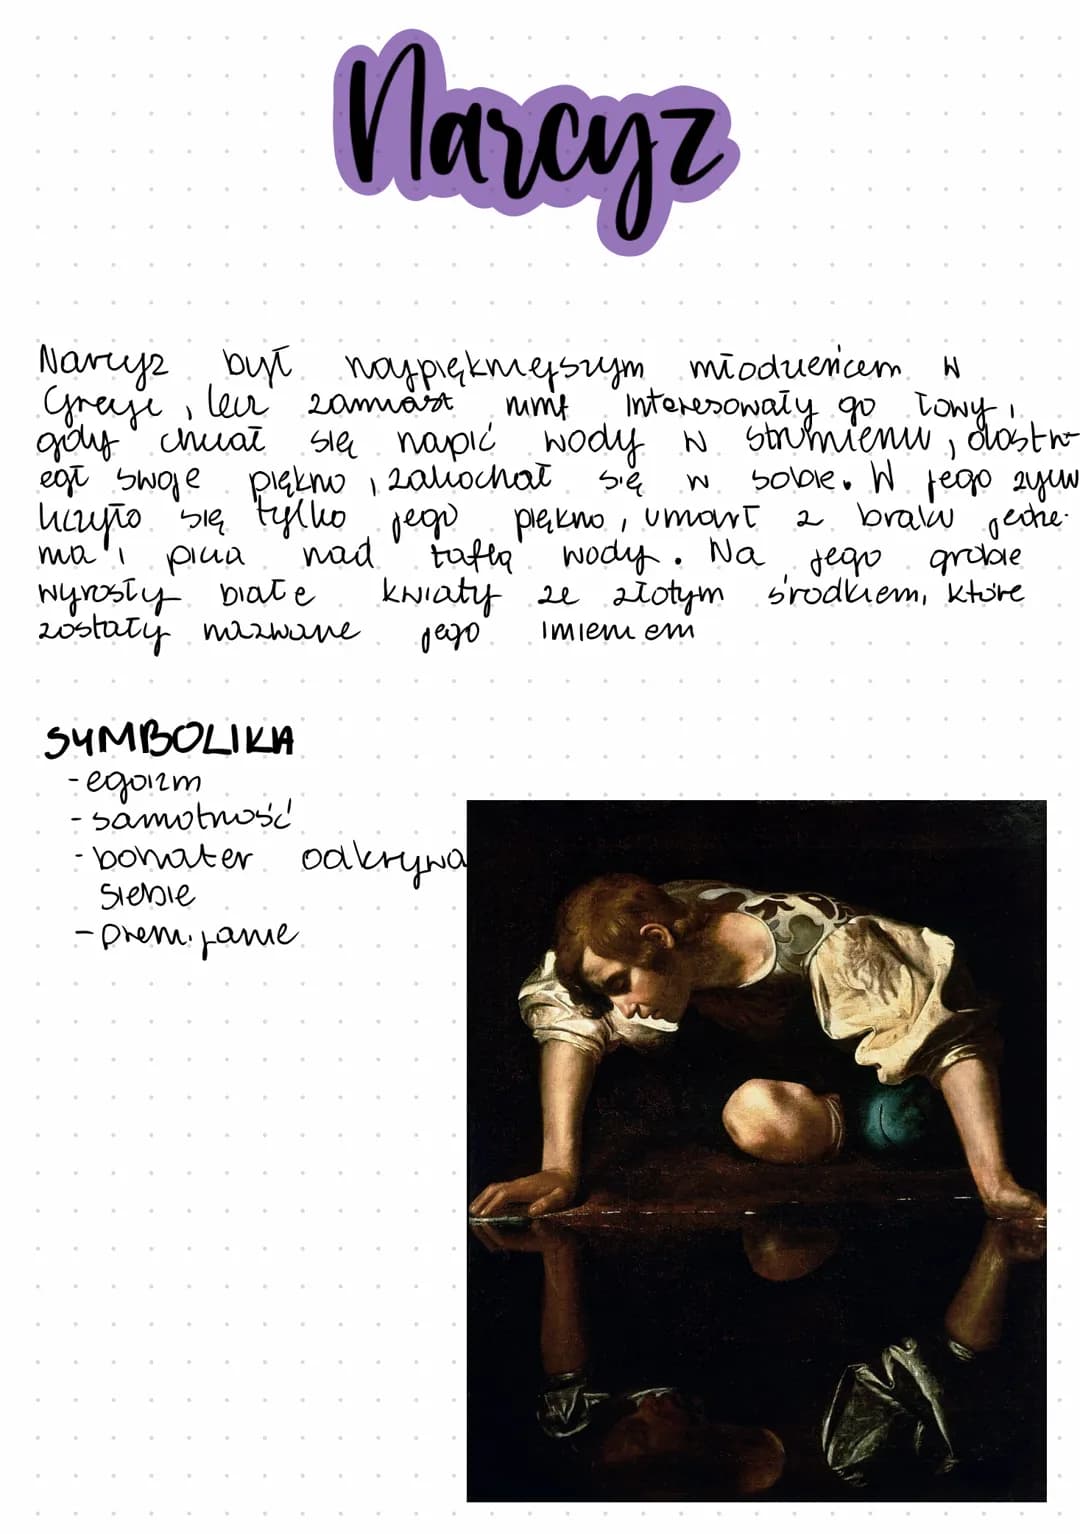 Narcyz
Narcyz był najpiękniejszym młodzieńcem w
Grecji, lecz zamiast nimf interesowały go łowy,
gdy chciał się napić wody w strumieniu, dostrz-
egł swoje piękno, zakochał się w sobie. W jego życiu
liczyło się tylko jego piękno, umarł z braku jedze-
nia i picia nad taflą wody. Na jego grobie
wyrosły białe kwiaty ze złotym środkiem, które
zostały nazwane jego imieniem
SYMBOLIKA
- egoizm
- samotność
- bohater odkrywa
siebie
- przemijanie